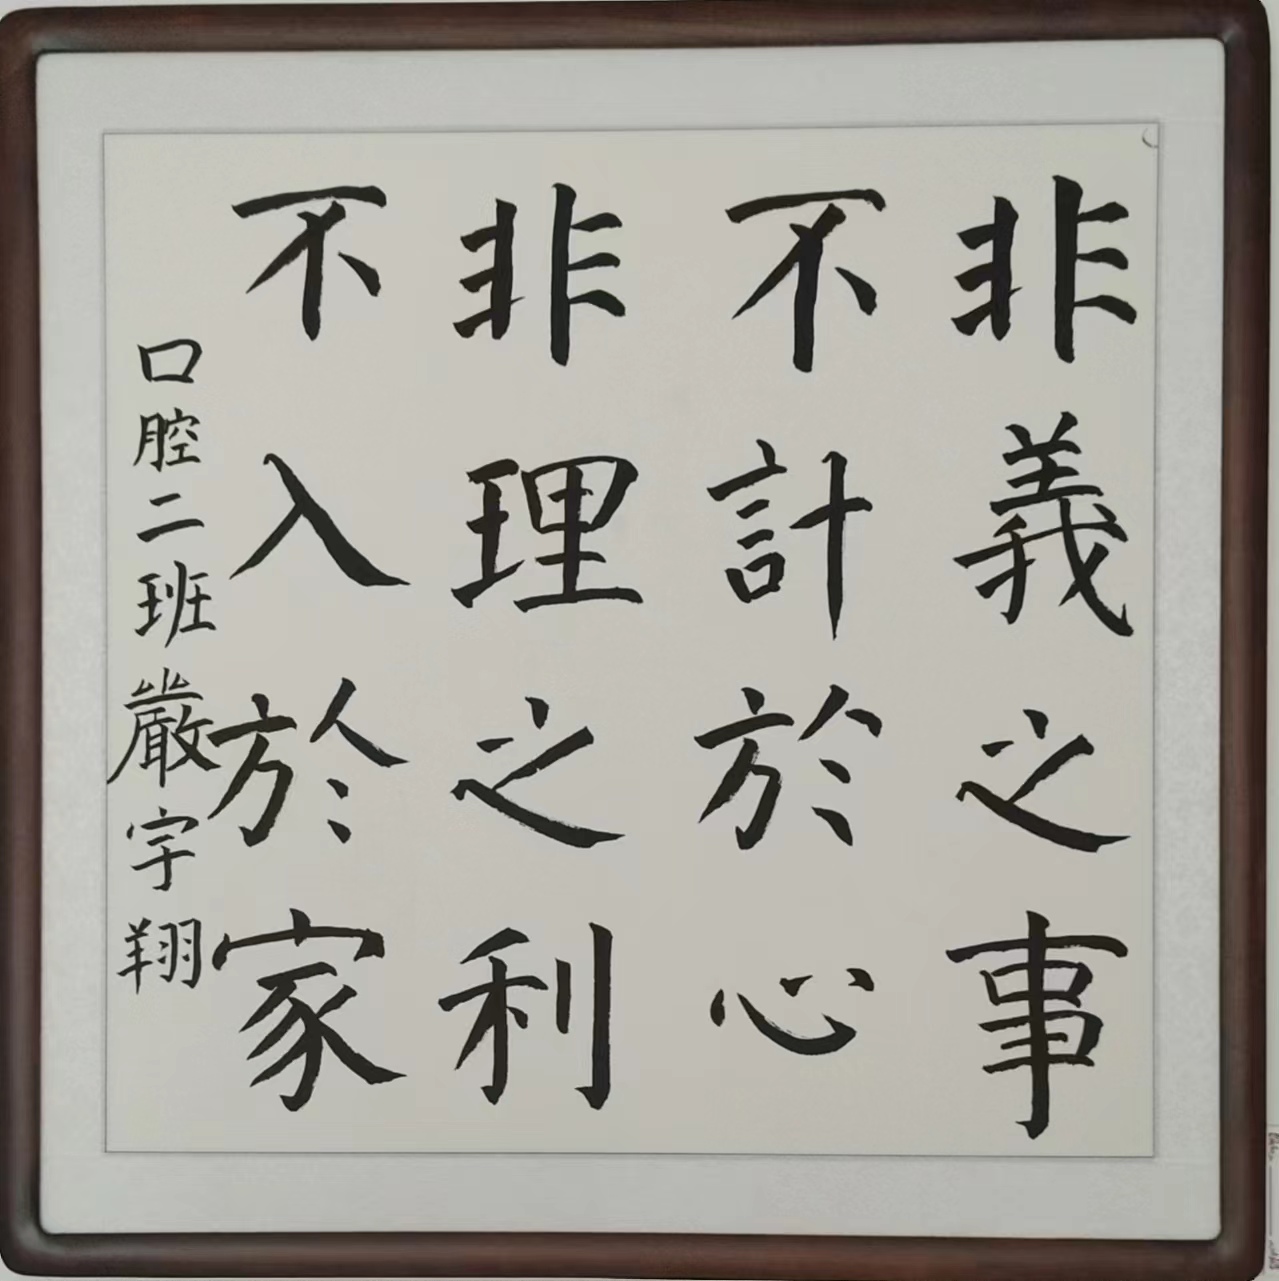 非義之事
不計於心
非理之利
不入於家
口腔二班嚴宇翔